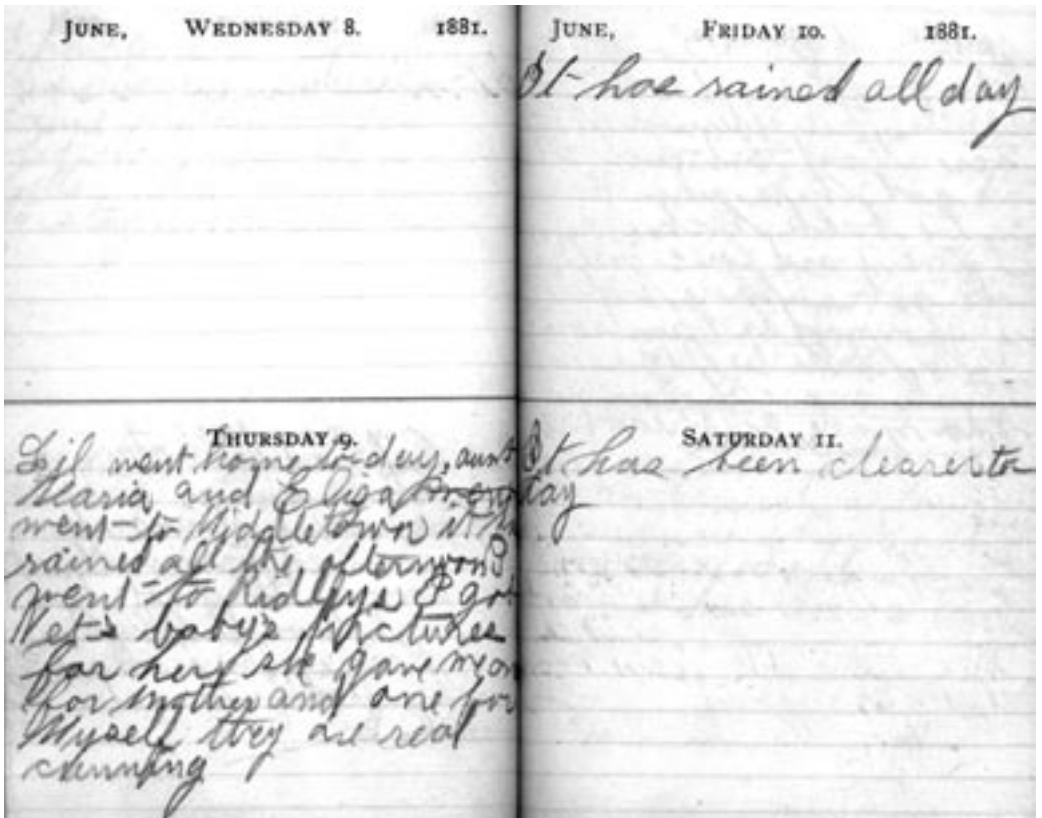 JUNE, WEDNESDAY 8. 1881.
THURSDAY 9.
Lil went home to-day, aunt
Maria and Eliza
went to Middletown it
rained all the afternoon I
went to Ridleys & got
Net's baby's pictures
for her, she gave me on
for mother and one for
Myself they are real
cunning
JUNE, FRIDAY 10. 1881.
It has rained all day
SATURDAY 11.
It has been clearer to
day